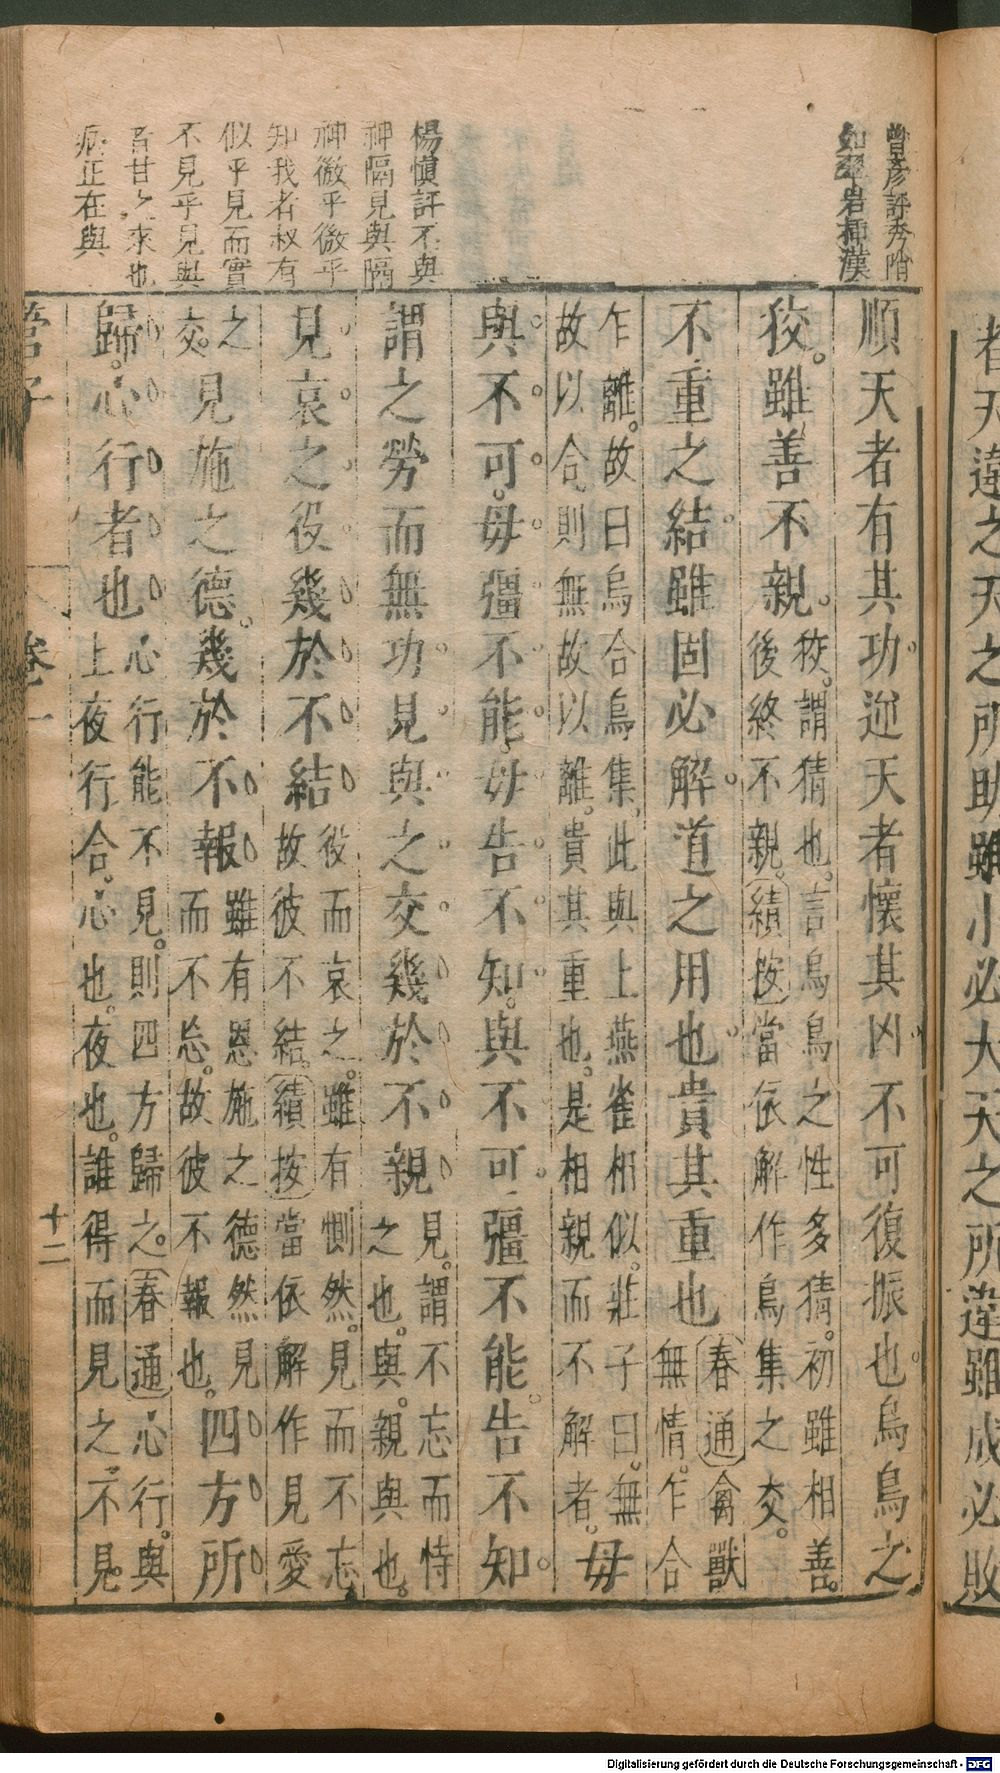 者天違之天之所助雖小必大天之所違雖成必敗
曾彦評秀階
如翠岩插漢
順天者有其功逆天者懷其凶不可復振也烏鳥之
狡雖善不親
狡謂猜也言烏鳥之性多猜初雖相善
後終不親績按當依解作烏集之交
不重之結雖固必解道之用也貴其重也
春通禽獸
無情乍合
乍離故曰烏合烏集此與上燕雀相似莊子曰無
故以合則無故以離貴其重也是相親而不解者
毋
與不可毋彊不能毋告不知與不可彊不能告不知
楊慎評不與
神隔見與隔
神微乎微乎
知我者叔有
似乎見而實
不見乎見與
旨甘之來也
病正在與
謂之勞而無功見與之交幾於不親
見謂不忘而恃
之也與親與也
見哀之役幾於不結
役而哀之雖有惻然見而不忘
故彼不結績按當依解作見愛
之
交
見施之德幾於不報
雖有恩施之德然見
而不忘故彼不報也
四方所
歸心行者也
心行能不見則四方歸之春通心行與
上夜行合心也夜也誰得而見之不見
管子
卷一
十二
Digitalisierung gefördert durch die Deutsche Forschungsgemeinschaft - DFG